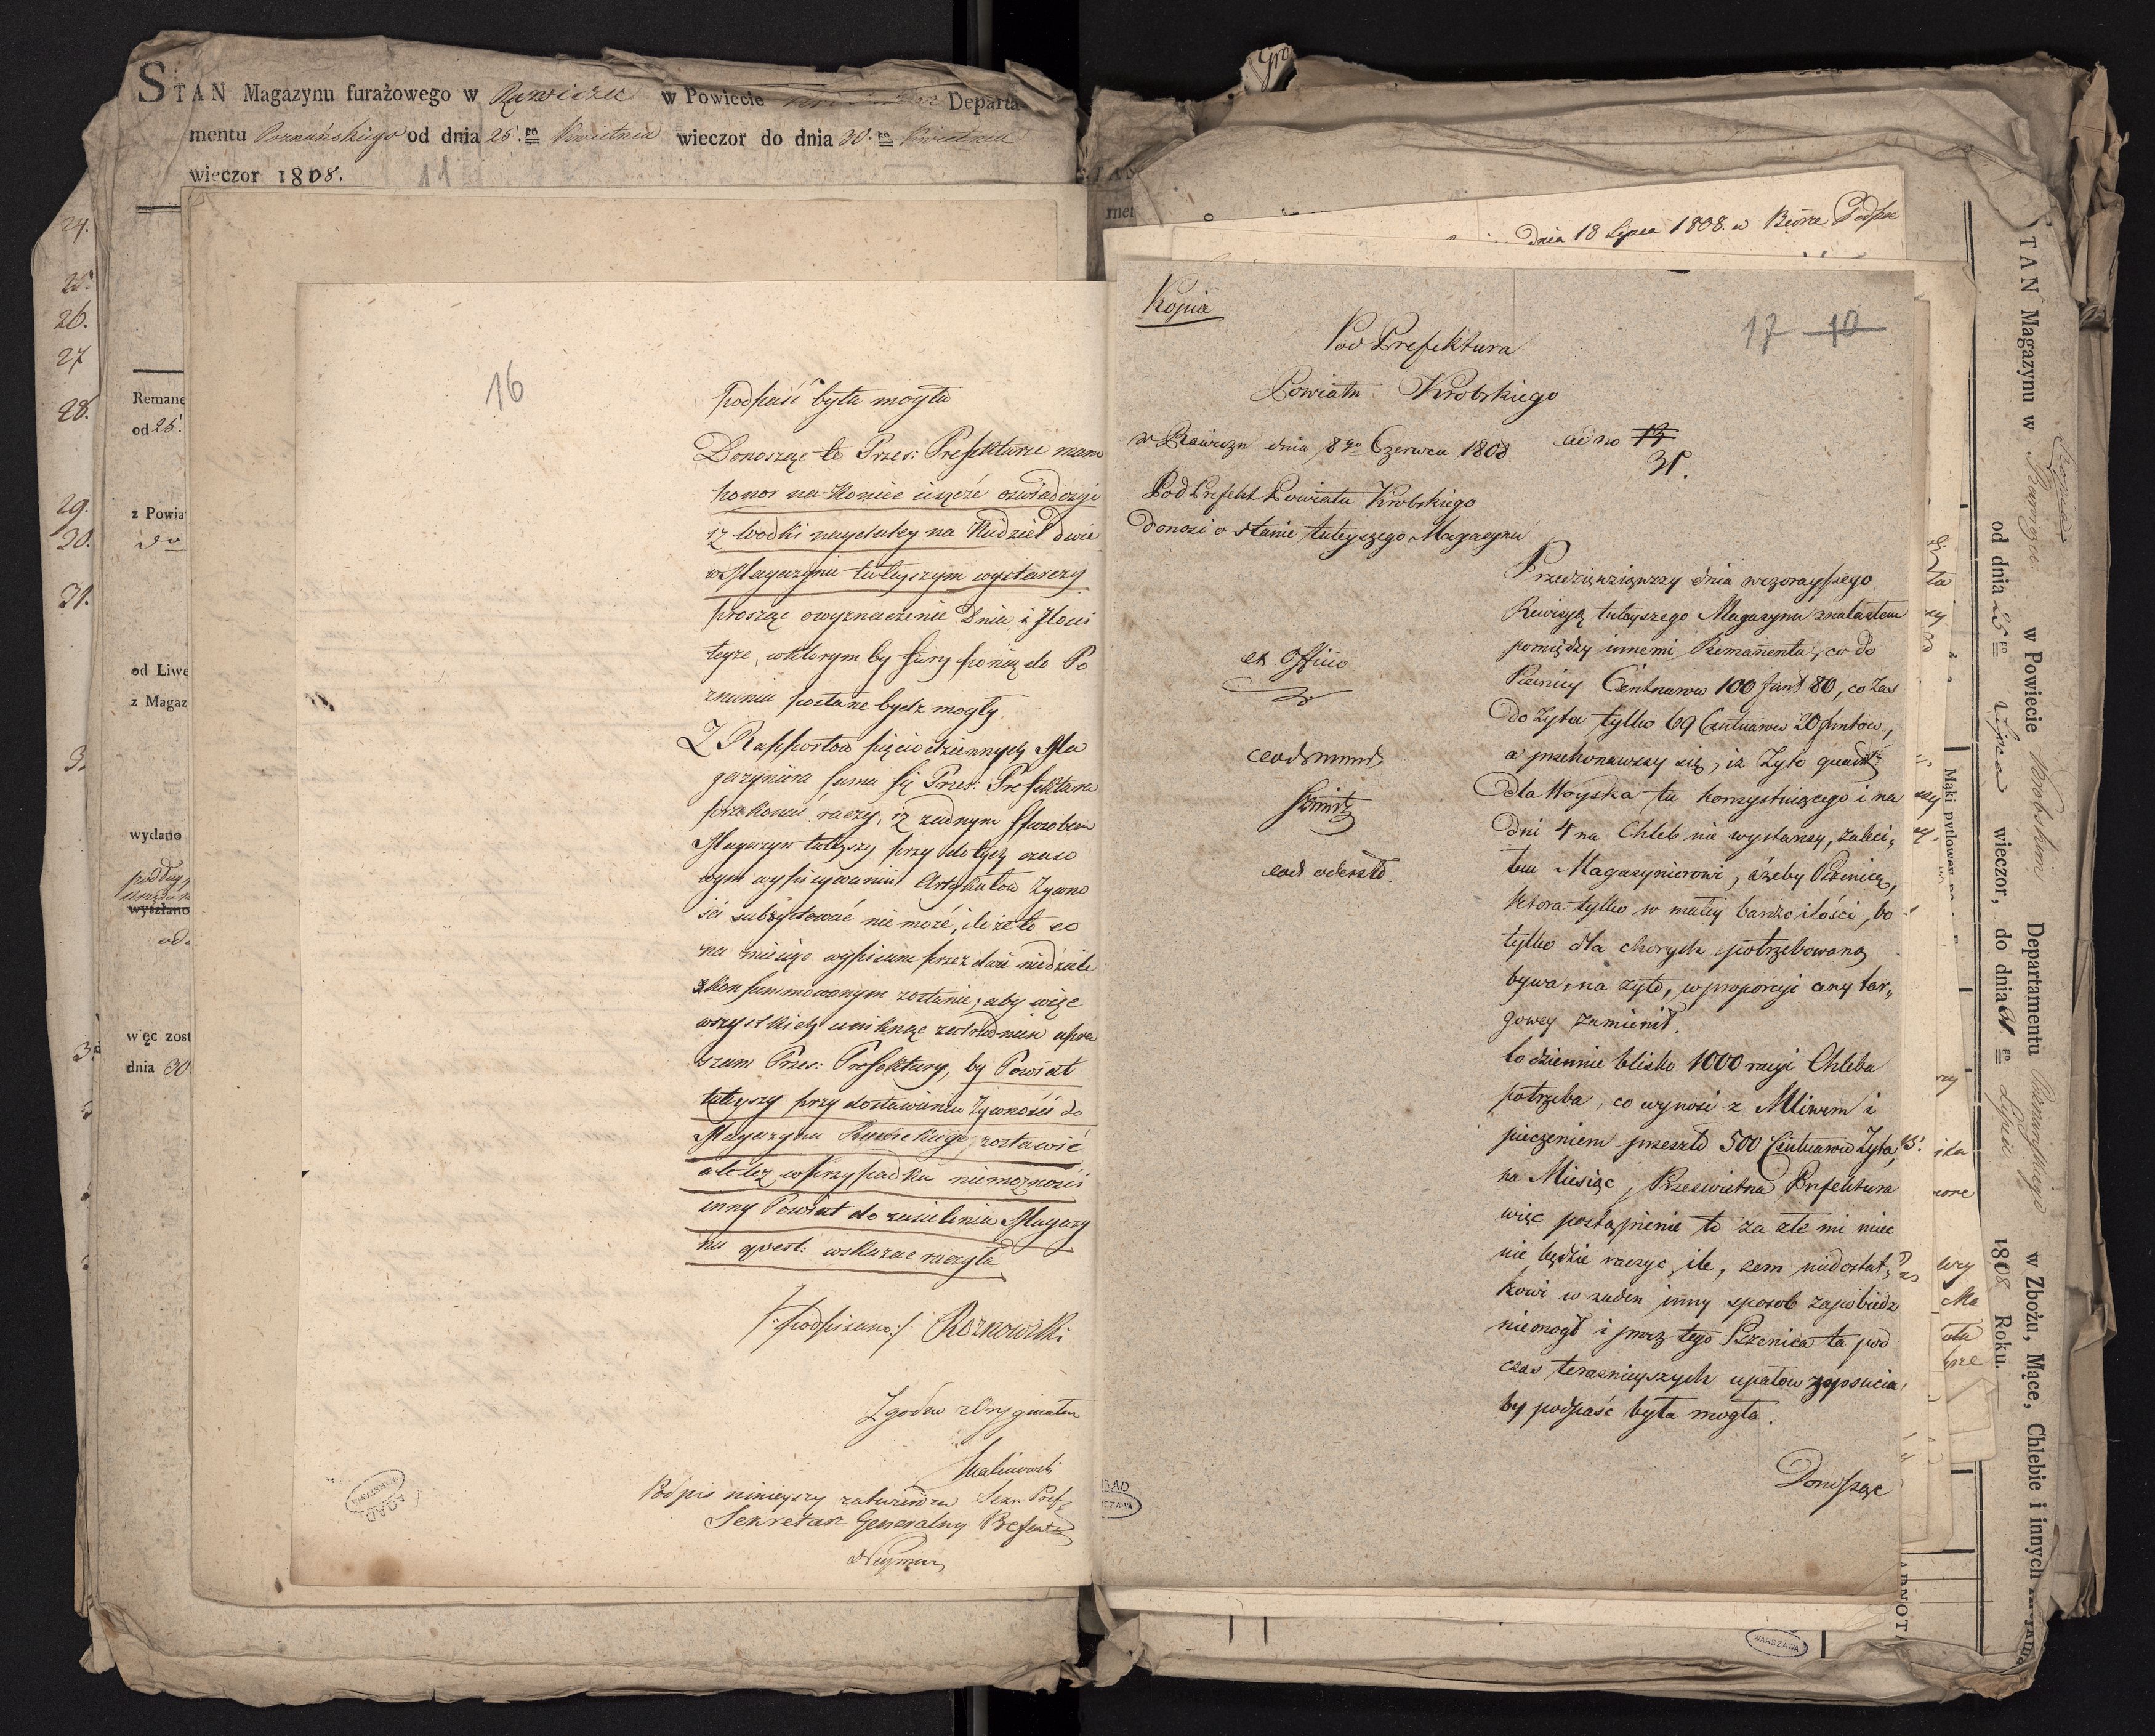 STAN Magazynu furażowego w Rawiczu w Powiecie Departa-
mentu Poznańskiego od dnia 25. go Kwietnia wieczor do dnia 30. go Kwietnia
wieczor 1808.
11
24.
25.
26.
27
28.
29.
30.
31.
Remane
od 25.
z Powia
do
od Liwe
z Magaz
wydano
podług
wyszłano
więc zost
dnia 30
16
podpaść była mogła
Donosząc to Przes: Prefekturze mam
honor na koniec ieszcze oswiadczyć
iż wodki naydaley na Niedziel dwie
w Magazynie tuteyszym wystarczy
prosząc o wyznaczenie Dnia i Ilości
teyże, w ktorym by fury po nią do Po
znania posłane bydz mogły.
Z Rapportow pięciodziennych Ma
gazyniera sama się Przes: Prefektura
przekonać raczy, iż żadnym sposobem
Magazyn tuteyszy przy dotych czaso
wym wypisywaniu Artykułow Żywno
ści subsystować nie może, ile że to co
na miesiąc wypisane przez dwie niedziele
skonsummowanym zostanie, aby więc
wszystkich uniknąć zatrudnien upra
szam Przes: Prefektury, by Powiat
tuteyszy przy dostawieniu Żywności do
Magazynu Rawickiego, zostawić
ale też w przypadku niemożności
inny Powiat do zasilenia Magazy
nu quest: wskazac raczyła
/:podpisano:/ Rożnowski
Zgodno z Oryginałem
Malinowski
Podpis ninieyszy zatwierdza Sekr Pref
Sekretarz Generalny Prefekt
AGAD
WARSZAWA
dnia 18 Lipca 1808. w Biórze Podpre
Kopia
17 10
Pod Prefektura
Powiatu Krobskiego
w Rawiczu dnia 8go Czerwca 1808. ad no 13
31.
Pod Prefekt Powiatu Krobskiego
donosi o stanie tuteyszego Magazynu
ex Officio
eod mund
Szmidt
eod odeszło.
Przedziewziąwszy dnia wczorayszego
Rewizyą tuteyszego Magazynu znalazłem
pomiędzy innemi Remanenta, co do
Pszenicy Centnarow 100 funt 80, co zas
do Żyta tylko 69 Centnarow 20 funtow,
a przekonawszy się, iż Żyto quaest:
dla Woyska tu konzystuiącego i na
dni 4 na Chleb nie wystarczy, zaleci,
łem Magazynierowi, ażeby Pszenicę,
ktora tylko w małey bardzo ilości, bo
tylko dla chorych potrzebowaną
bywa, na żyto, w proporcyi ceny tar,,
gowey zamienił.
Co dziennie blisko 1000 racyi Chleba
potrzeba, co wynosi z Mliwem i
pieczeniem przeszło 500 Centnarow Żyta,
na Miesiąc, Prześwietna Prefektura
więc postąpienie to za złe mi miec
nie będzie raczyc, ile, żem niedostat,
kowi w żaden inny sposob zapobiedz
niemogł i przy tego Pszenica ta pod
czas teraznieyszych upałow zepsucia
by podpaść była mogła.
Donosząc
AGAD
WARSZAWA
WARSZAWA
Kopia
STAN Magazynu w Rawiczu w Powiecie Krobskim Departamentu Poznańskiego w Zbożu, Mące, Chlebie i innych
od dnia 25 go Lipca wieczor, do dnia 31 go Lipca 1808 Roku.
Mąki pytlowey